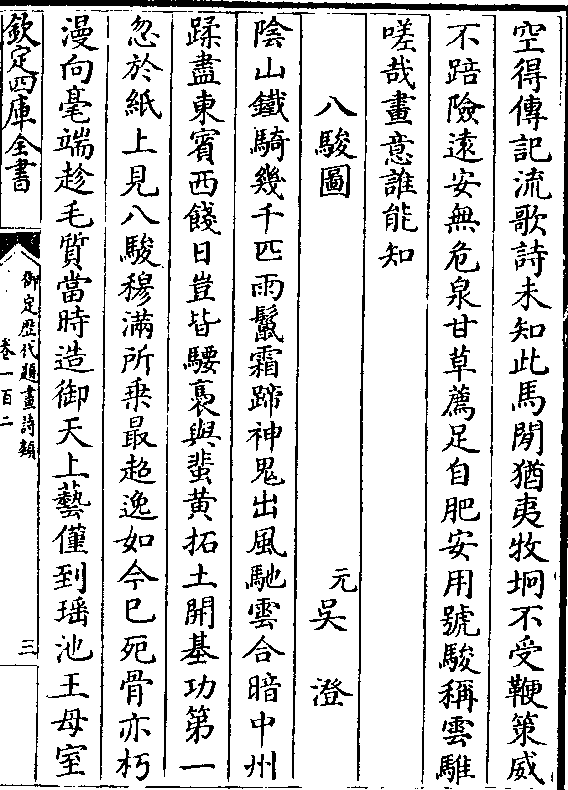 空得傳記流歌詩未知此馬閒猶夷牧坰不受鞭策威
不踣險遠安無危泉甘草薦足自肥安用號駿稱雲騅
嗟哉畫意誰能知
八駿圖
元吳澄
陰山鐵騎幾千匹雨鬛霜蹄神鬼出風馳雲合暗中州
蹂盡東賓西餞日豈皆騕褭與蜚黃拓土開基功第一
忽於紙上見八駿穆滿所乗最超逸如今已死骨亦朽
漫向毫端趁毛質當時造御天上藝僅到瑶池王母室
欽定四庫全書
御定歴代題畫詩類
卷一百二
三